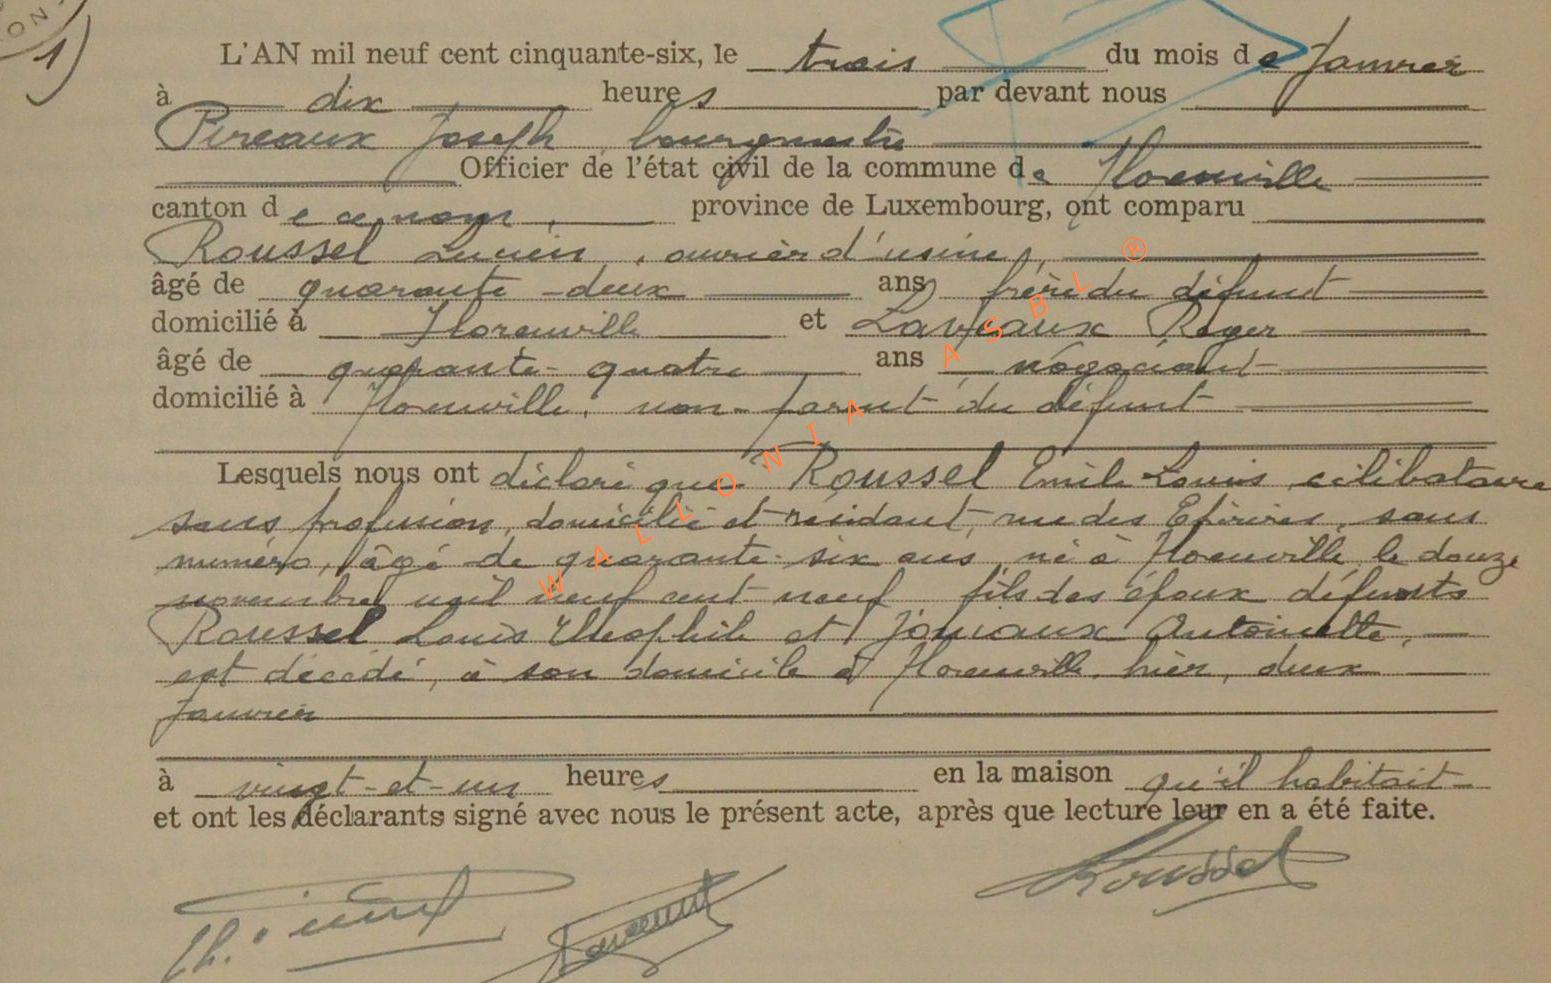 1)
L'AN mil neuf cent cinquante-six, le trois du mois de Janvier
à dix heures par devant nous
Pireaux Joseph, bourgmestre
Officier de l'état civil de la commune de Florenville
canton de ce nom, province de Luxembourg, ont comparu
Roussel Lucien, ouvrier d'usine,
âgé de quarante-deux ans frère du défunt
domicilié à Florenville et Laveaux Roger
âgé de quarante-quatre ans négociant
domicilié à Florenville, non-parent du défunt
Lesquels nous ont déclaré que Roussel Emile Louis célibataire
sans profession, domicilié et résidant rue des Epinires, sans
numéro, âgé de quarante-six ans, né à Florenville le douze
novembre mil neuf cent neuf fils des époux défunts
Roussel Louis Théophile et Joniaux Antoinette,
est décédé, à son domicile à Florenville, hier, deux
Janvier
à vingt-et-un heures en la maison qu'il habitait
et ont les déclarants signé avec nous le présent acte, après que lecture leur en a été faite.
Roussel
WALLONIA ASBL ®